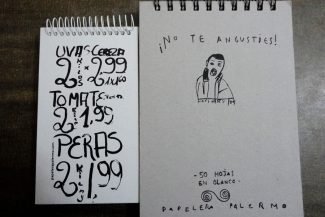 UVAS-CEREZA
2 KILOS x 2,99
TOMATE
2 KILOS 1,99
PERAS
2 KILOS 1,99
¡NO TE ANGUSTIES!
-50 HOJAS
EN BLANCO-
PAPELERA PALERMO